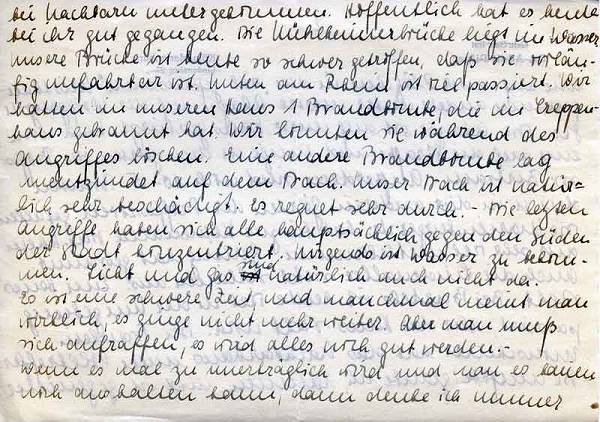 bei Nachbarn untergekommen. Hoffentlich hat es heute
bei ihr gut gegangen. Die Mülheimerbrücke liegt im Wasser
unsere Brücke ist heute so schwer getroffen, daß sie vorläu-
fig unfahrbar ist. Unten am Rhein ist viel passiert. Wir
hatten in unserem Haus 1 Brandbombe, die im Treppen-
haus gebrannt hat. Wir konnten sie während des
Angriffes löschen. Eine andere Brandbombe lag
unentzündet auf dem Dach. Unser Dach ist natür-
lich sehr beschädigt. Es regnet sehr durch. - Die letzten
Angriffe haben sich alle hauptsächlich gegen den Süden
der Stadt konzentriert, nirgends ist Wasser zu bekom-
men. Licht und Gas sind natürlich auch nicht da.
Es ist eine schwere Zeit und manchmal meint man
wirklich, es ginge nicht mehr weiter. Aber man muß
sich aufraffen, es wird alles noch gut werden.-
Wenn es mal zu unerträglich wird und man es kaum
noch aushalten kann, dann denke ich immer